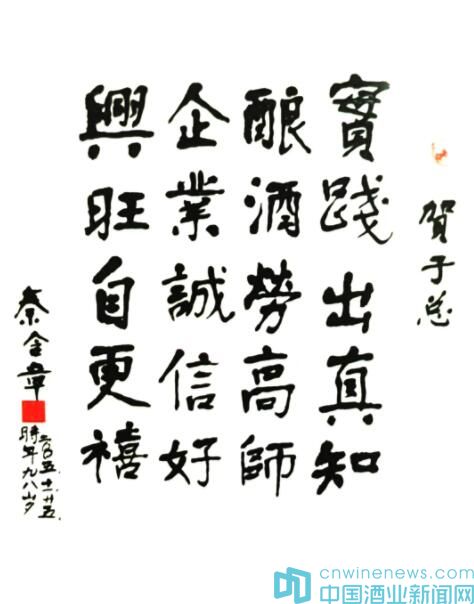 贺子总
實踐出真知
酿酒勞高師
企業誠信好
興旺自更禧
秦含章
二〇〇五.十一.廿五.
時年九八岁
cnwinenews.com
中国酒业新闻网